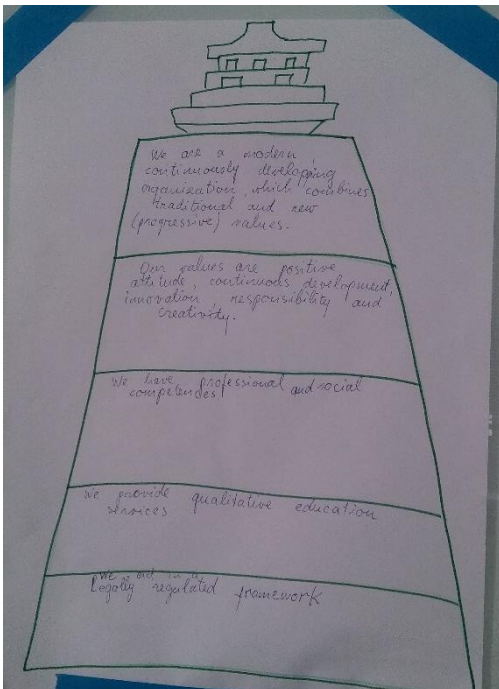 We are a modern,
continuously developing
organization, which combines
traditional and new
(progressive) values.
Our values are positive
attitude, continuous development,
innovation, responsibility and
creativity.
We have professional and social
competences
We provide qualitative education
services
We act in a
legally regulated framework